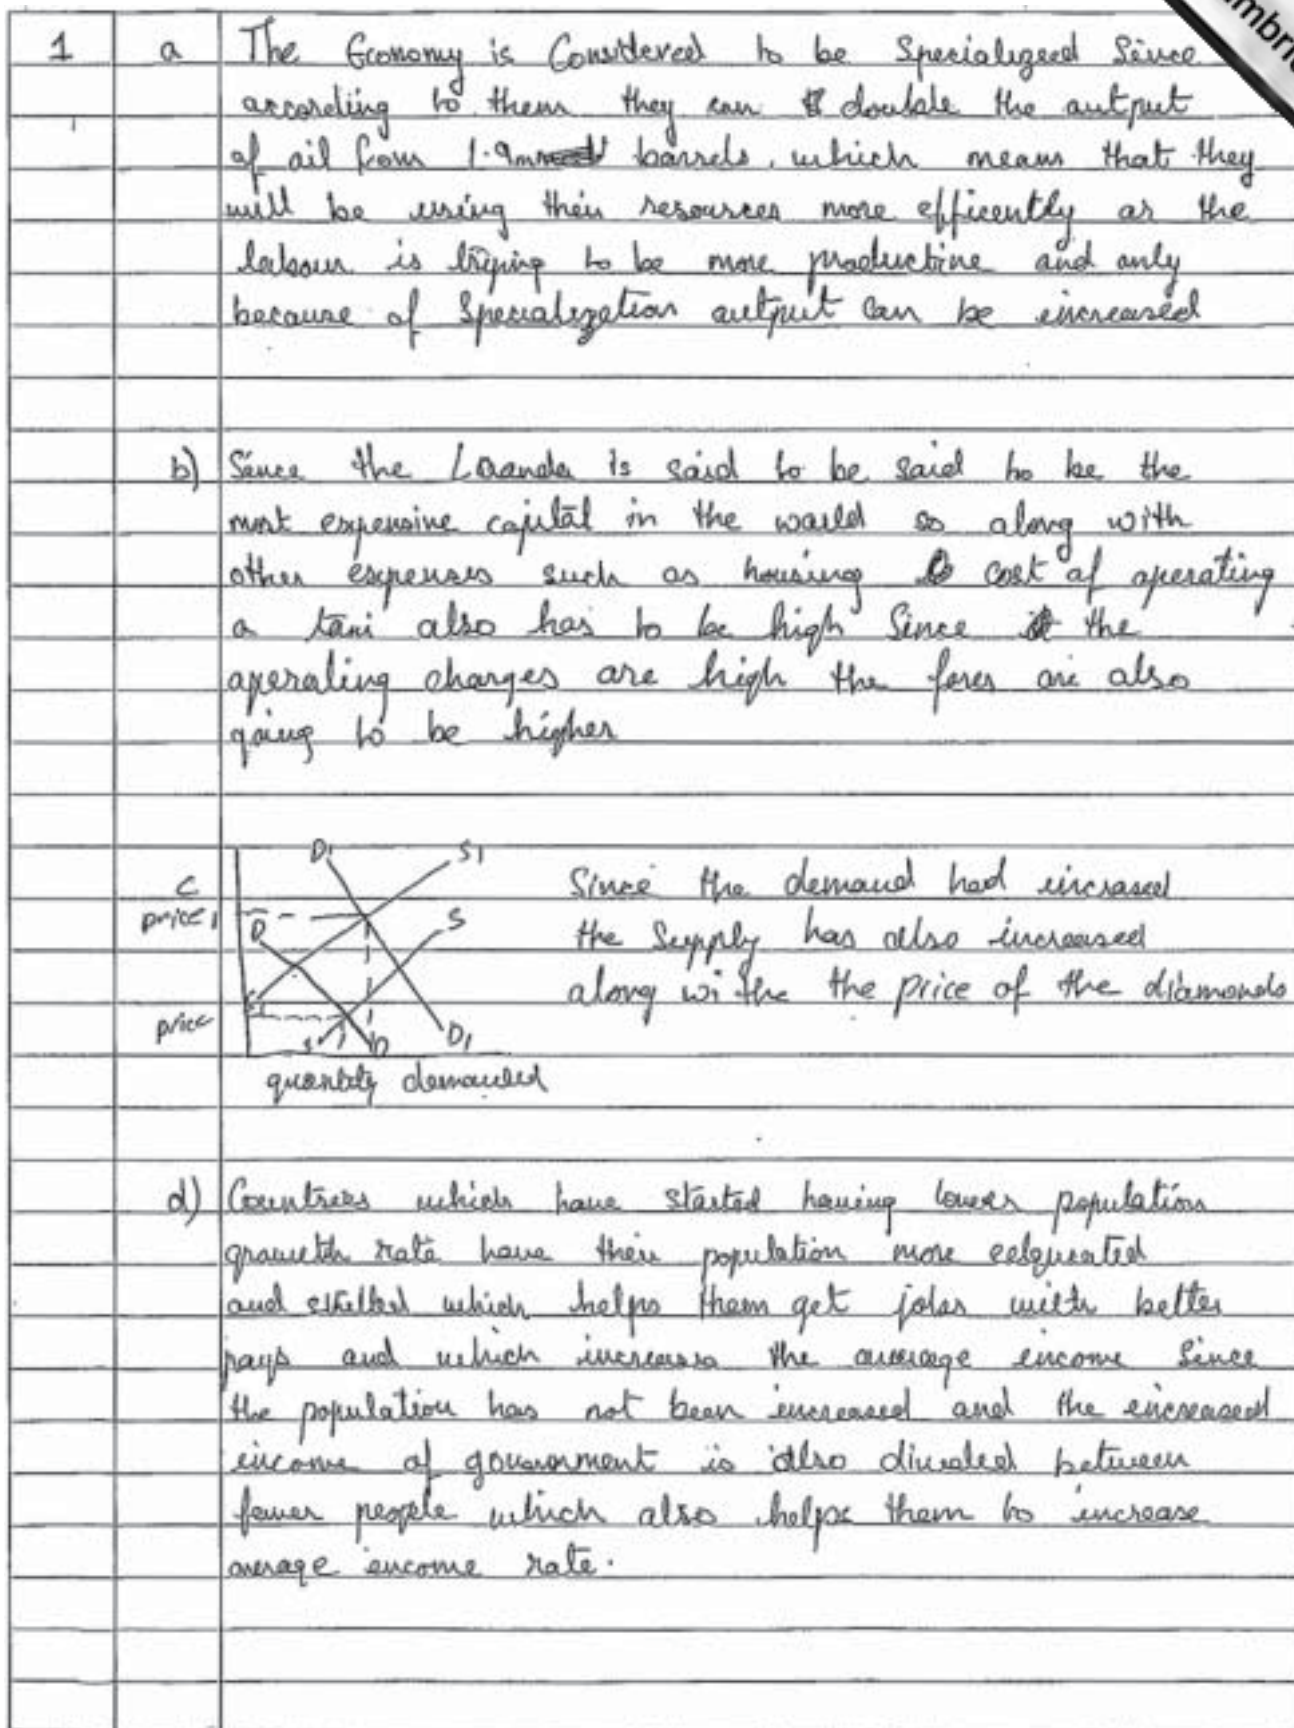 mbri
1 a The Economy is Considered to be Specialized Since
according to them they can double the output
of oil from 1.9m barrels. which means that they
will be using their resources more efficently as the
labour is trying to be more productive and only
because of Specialization output can be increased
b) Since the Luanda is said to be said to be the
most expensive capital in the world so along with
other expenses such as housing cost of operating
a taxi also has to be high Since the
operating charges are high the fares are also
going to be higher
c
D1 S1
price1
D S
S1
price
S D D1
quantity demanded
Since the demand had incrased
the Supply has also increased
along wi the the price of the diamonds
d) Countries which have started having lower population
growth rate have their population more eduquated
and skilled which helps them get jobs with better
pays and which increases the average income Since
the population has not been increased and the increased
income of government is also divided between
fewer people which also helps them to increase
average income rate.